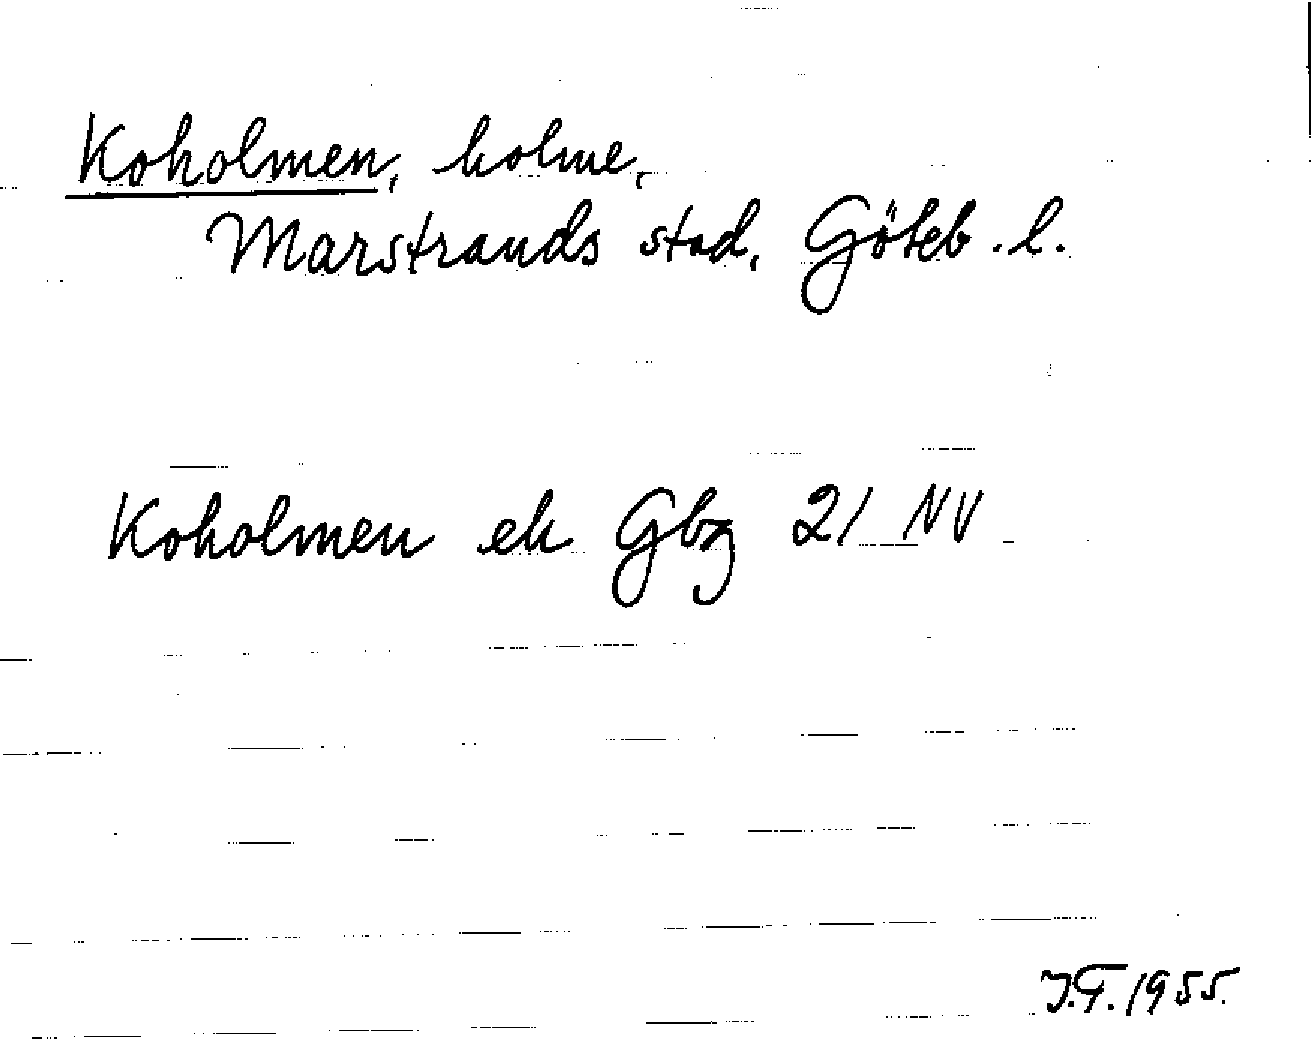 Koholmen, holme,
Marstrands stad, Göteb. l.
Koholmen ek Gbg 21 NV
J.F. 1955.